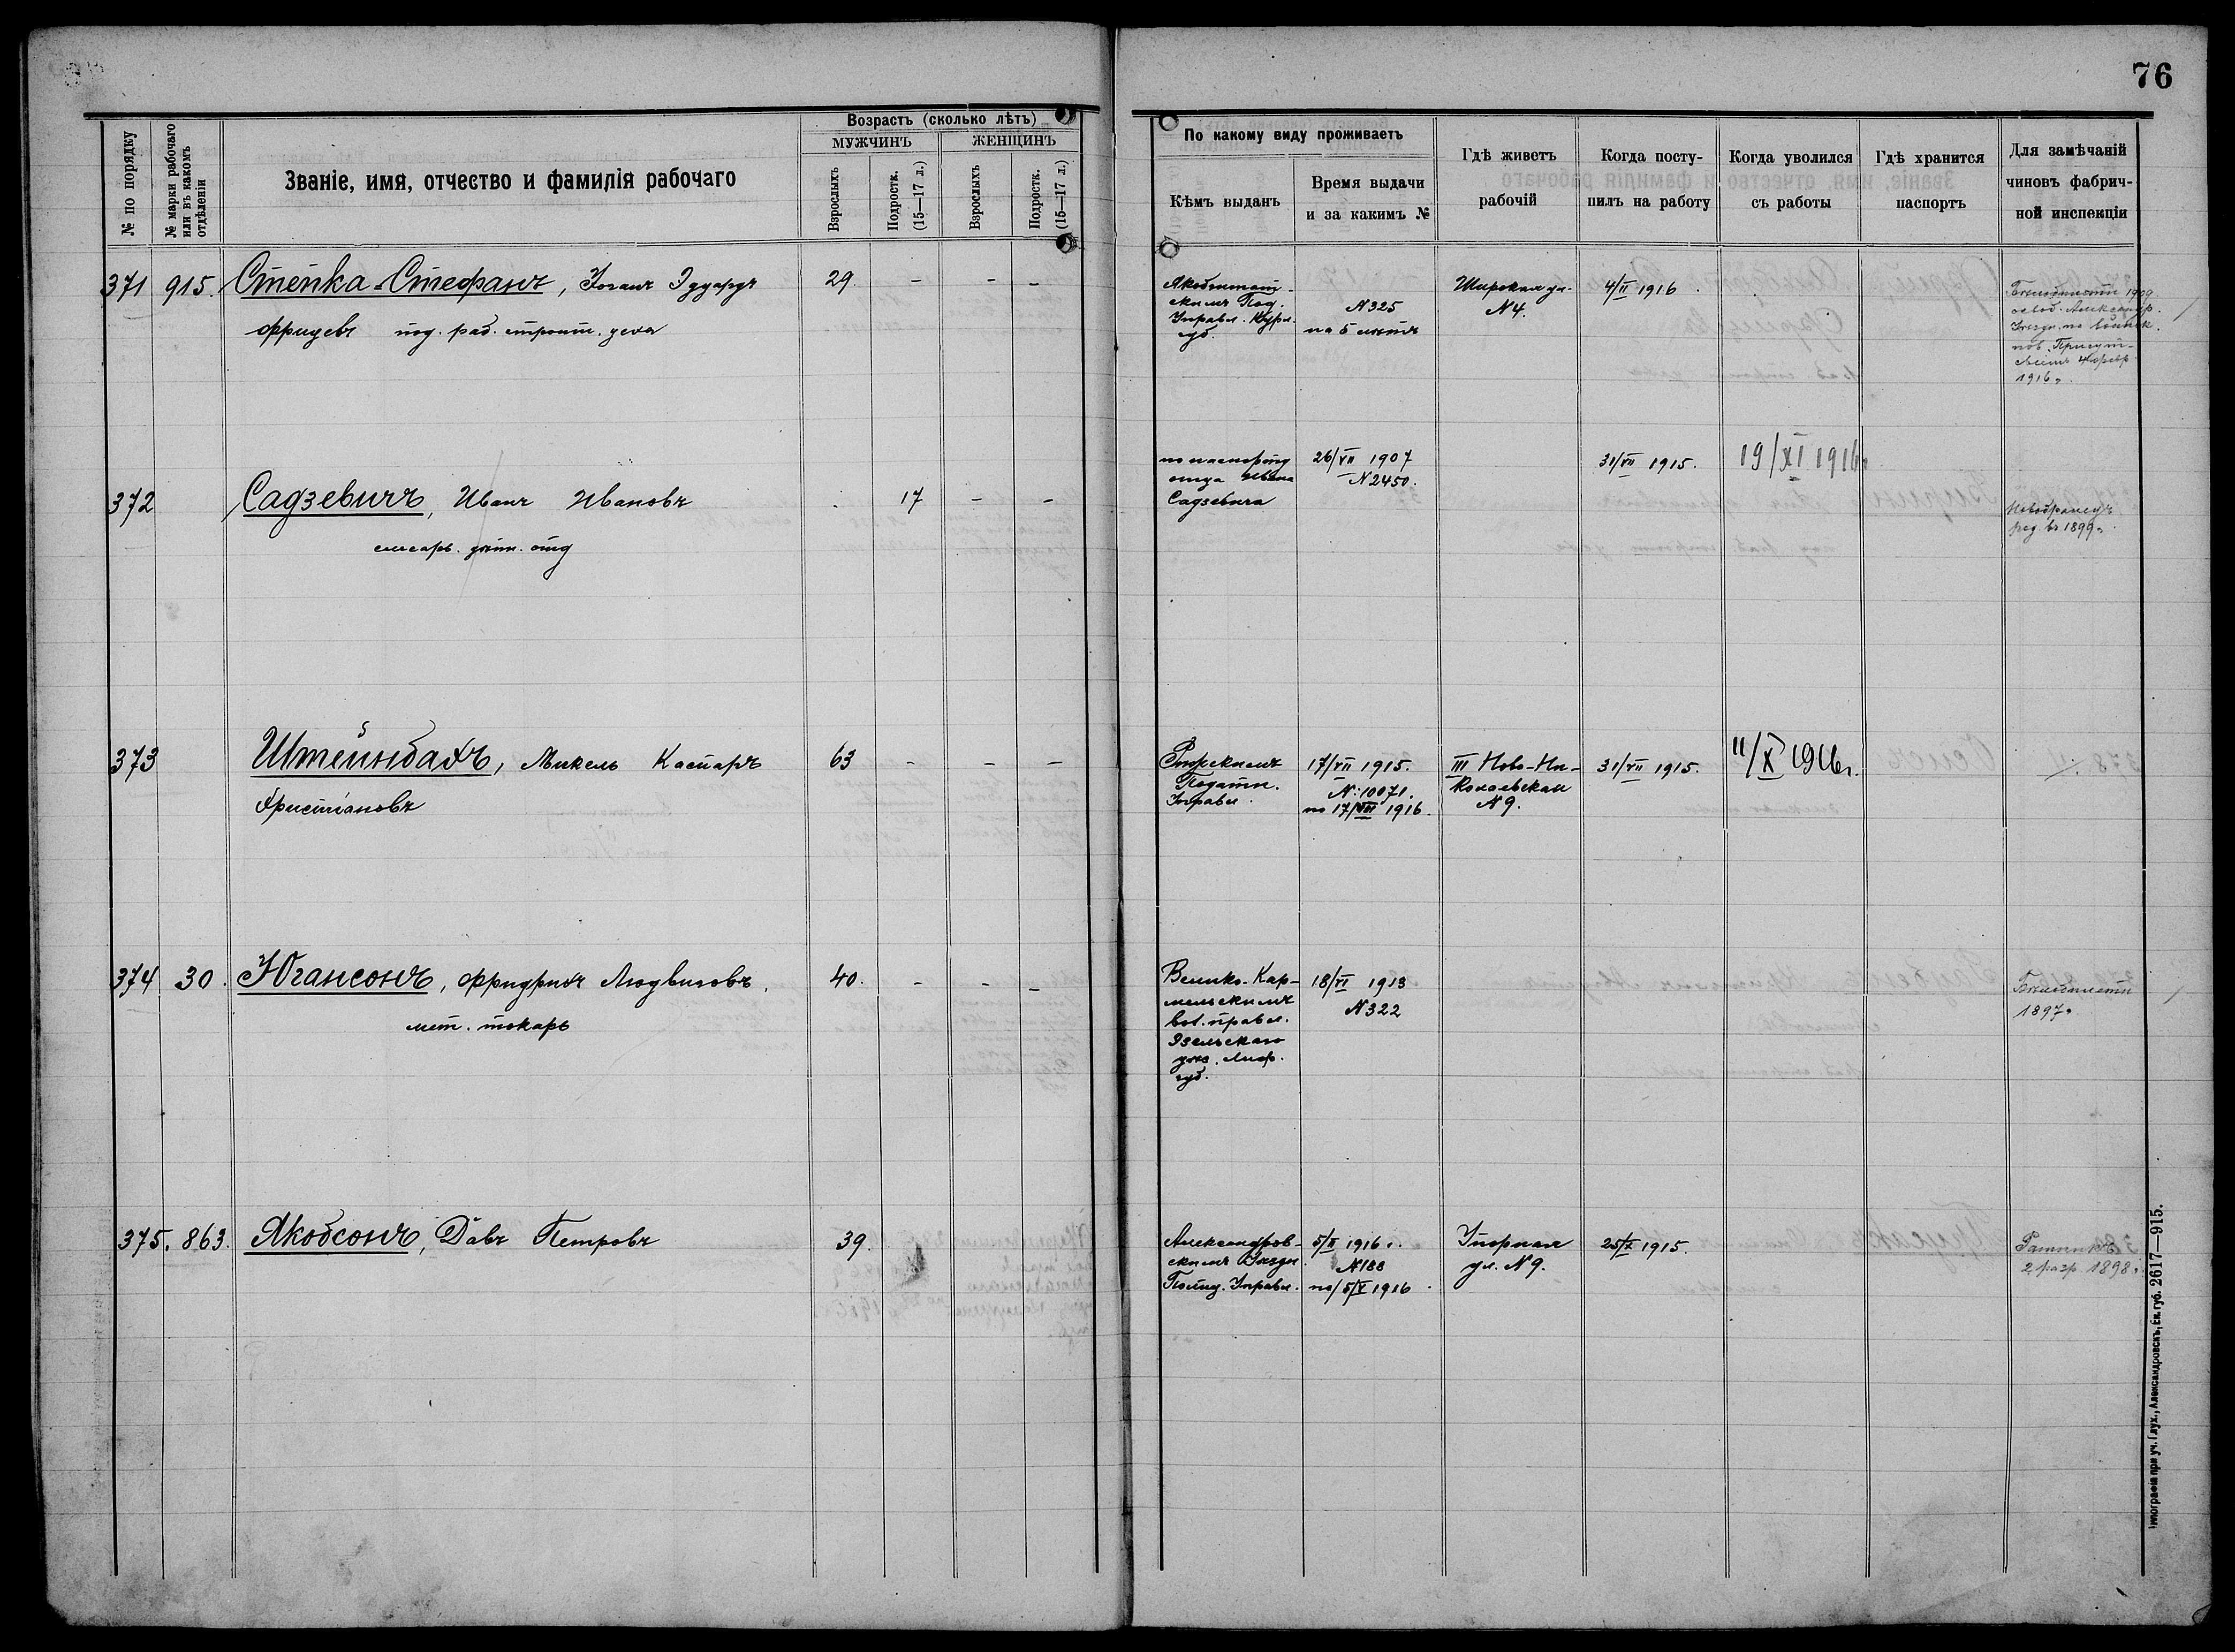 76
№ по порядку
№ марки рабочаго или въ какомъ отдѣленіи
Званіе, имя, отчество и фамилія рабочаго
Возрастъ (сколько лѣтъ)
МУЖЧИНЪ
ЖЕНЩИНЪ
Взрослыхъ
Подростк. (15—17 л.)
Взрослыхъ
Подростк. (15—17 л.)
По какому виду проживаетъ
Кѣмъ выданъ
Время выдачи и за какимъ №
Гдѣ живетъ рабочій
Когда поступилъ на работу
Когда уволился съ работы
Гдѣ хранится паспортъ
Для замѣчаній чиновъ фабричной инспекціи
371 915. Степка-Стефанъ, Іоганъ Эдуардъ 29. - - -
Фрицевъ под. раб. строит. цеха
Якобштат-
скимъ Под.
Управл. Курл.
губ.
N 325
на 5 лѣтъ
Широкая ул.
N 4.
4/II 1916.
1909
1916 г.
372 Садзевичъ, Иванъ Ивановъ 17 - -
слесарь отд
по паспорту
отца Ивана
Садзевича
26/VII 1907
N 2450.
31/VII 1915.
19/XI 1916 г.
Новобранецъ
въ 1899 г.
373 Штейнбахъ, Микель Каспаръ 63 - - -
Христіановъ
Рижскимъ
Податн.
Управл.
17/VII 1915.
N: 10071.
по 17/VII 1916.
III Ново-Ни-
кольская
N 9.
31/VII 1915.
11/X 1916 г.
374 30. Югансонъ, Фридрихъ Людвиговъ, 40. - - -
мет. токарь
Велико-Кар-
мельскимъ
вол. правл.
Эзельскаго
уѣз. Лиф.
губ.
18/VI 1913
N 322
1897 г.
375. 863. Якобсонъ, Давъ Петровъ 39.
Александров-
скимъ Уѣздн.
Полиц. Управл.
5/II 1916 г.
N 188
по 5/V 1916
Упорная
ул. N 9.
25/X 1915.
Ратникъ
2 разр. 1898 г.
Типографія при уч. Глух., Александровскъ, Ек. губ. 2617—915.